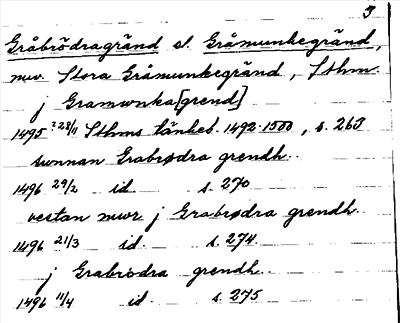 3
Gråbrödragränd el. Gråmunkegränd,
nuv. Stora Gråmunkegränd, Sthm.
j Gramwnka[grend]
1495 ? 28/11 Sthms tänkeb. 1492-1500, s. 263
sunnan Grabrødra grendh.
1496 29/2 id s. 270
vestan mwr j Grabrødra grendh.
1496 21/3 id. s. 274.
j Grabrødra grendh.
1496 11/4 id. s. 275